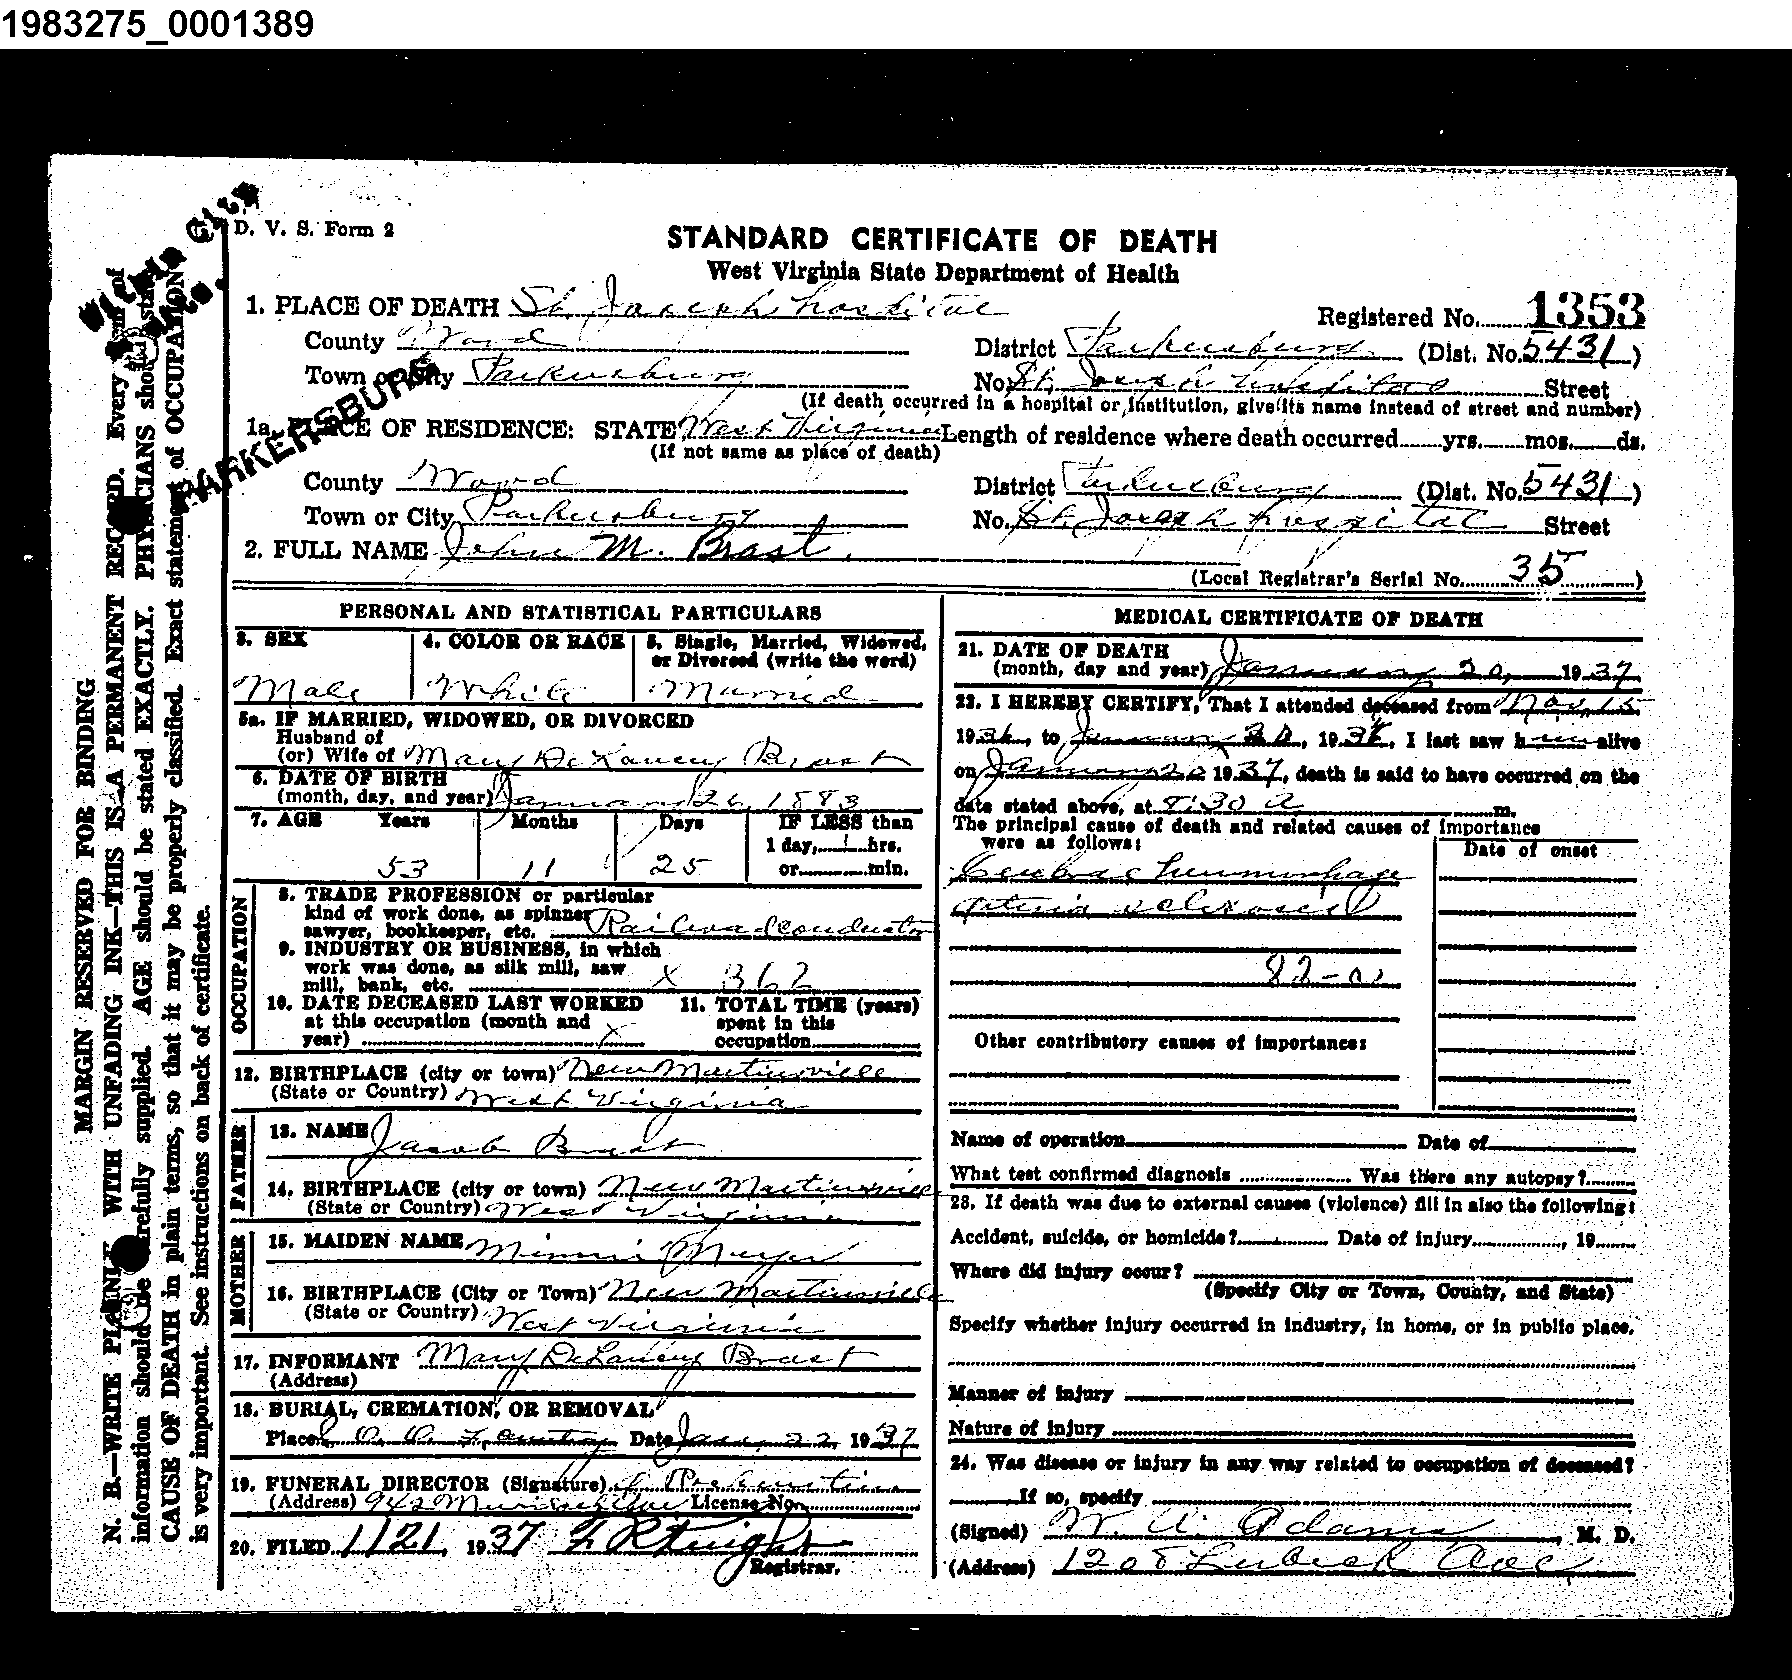 1983275_0001389
WITHIN CITY
D. V. S. Form 2
STANDARD CERTIFICATE OF DEATH
West Virginia State Department of Health
1. PLACE OF DEATH St. Joseph hospital
Registered No. 1353
County Wood
District Parkersburg (Dist. No. 5431)
Town or City Parkersburg
No. St. Joseph hospital Street
(If death occurred in a hospital or institution, give its name instead of street and number)
PARKERSBURG
1a. PLACE OF RESIDENCE: STATE West Virginia Length of residence where death occurred yrs. mos. ds.
(If not same as place of death)
County Wood
District Parkersburg (Dist. No. 5431)
Town or City Parkersburg
No. St. Joseph hospital Street
2. FULL NAME John M. Brast.
(Local Registrar's Serial No. 35)
MARGIN RESERVED FOR BINDING
N. B.—WRITE PLAINLY WITH UNFADING INK—THIS IS A PERMANENT RECORD. Every item of
information should be carefully supplied. AGE should be stated EXACTLY. PHYSICIANS should state
CAUSE OF DEATH in plain terms, so that it may be properly classified. Exact statement of OCCUPATION
is very important. See instructions on back of certificate.
PERSONAL AND STATISTICAL PARTICULARS
3. SEX
4. COLOR OR RACE
5. Single, Married, Widowed,
or Divorced (write the word)
Male White Married
5a. IF MARRIED, WIDOWED, OR DIVORCED
Husband of
(or) Wife of Mary DeLancy Brast
6. DATE OF BIRTH
(month, day, and year) January 26, 1883
7. AGE Years Months Days IF LESS than
1 day, hrs.
53 11 25 or min.
OCCUPATION
8. TRADE PROFESSION or particular
kind of work done, as spinner
sawyer, bookkeeper, etc. Railroad conductor
9. INDUSTRY OR BUSINESS, in which
work was done, as silk mill, saw
mill, bank, etc. x 362
10. DATE DECEASED LAST WORKED
at this occupation (month and
year) x
11. TOTAL TIME (years)
spent in this
occupation
12. BIRTHPLACE (city or town) New Martinsville
(State or Country) West Virginia
FATHER
13. NAME Jacob Brast
14. BIRTHPLACE (city or town) New Martinsville
(State or Country) West Virginia
MOTHER
15. MAIDEN NAME Minnie Meyer
16. BIRTHPLACE (City or Town) New Martinsville
(State or Country) West Virginia
17. INFORMANT Mary DeLancy Brast
(Address)
18. BURIAL, CREMATION, OR REMOVAL
Place Date Jan. 22 1937
19. FUNERAL DIRECTOR (Signature)
(Address) License No.
20. FILED 1/21, 1937 Knight
Registrar.
MEDICAL CERTIFICATE OF DEATH
21. DATE OF DEATH
(month, day and year) January 20, 1937
22. I HEREBY CERTIFY, That I attended deceased from Nov. 15
1936, to January 20, 1936, I last saw him alive
on January 20 1937, death is said to have occurred on the
date stated above, at 8:30 A m.
The principal cause of death and related causes of importance
were as follows:
Date of onset
Cerebral hemmorhage
arterio sclerosis
82-a
Other contributory causes of importance:
Name of operation Date of
What test confirmed diagnosis Was there any autopsy?
23. If death was due to external causes (violence) fill in also the following:
Accident, suicide, or homicide? Date of injury , 19
Where did injury occur?
(Specify City or Town, County, and State)
Specify whether injury occurred in industry, in home, or in public place.
Manner of injury
Nature of injury
24. Was disease or injury in any way related to occupation of deceased?
If so, specify
(Signed) W. A. Adams, M. D.
(Address) 1208 Lubeck Ave